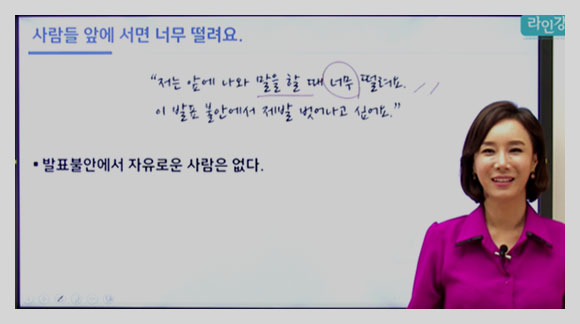 사람들 앞에 서면 너무 떨려요.
라인강
“저는 앞에 나와 말을 할 때 너무 떨려요.
이 발표 불안에서 제발 벗어나고 싶어요.”
▪ 발표불안에서 자유로운 사람은 없다.